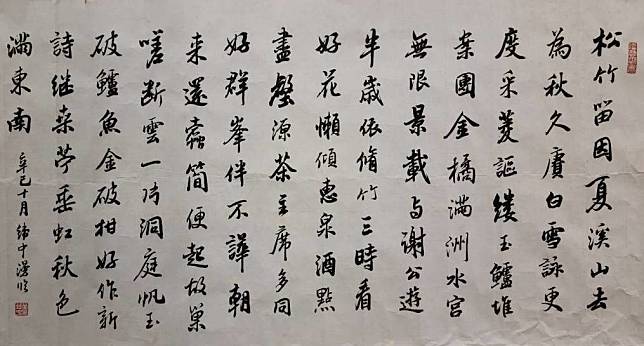 松竹留因夏溪山去
為秋久賡白雪詠更
度采菱謳縷玉鱸堆
案團金橘滿洲水宮
無限景載与謝公遊
半歲依脩竹三時看
好花懶傾惠泉酒點
盡壑源茶主席多同
好群峯伴不譁朝
来還蠹簡便起故巢
嗟断雲一片洞庭帆玉
破鱸魚金破柑好作新
詩継桑苧垂虹秋色
滿東南
辛巳十月